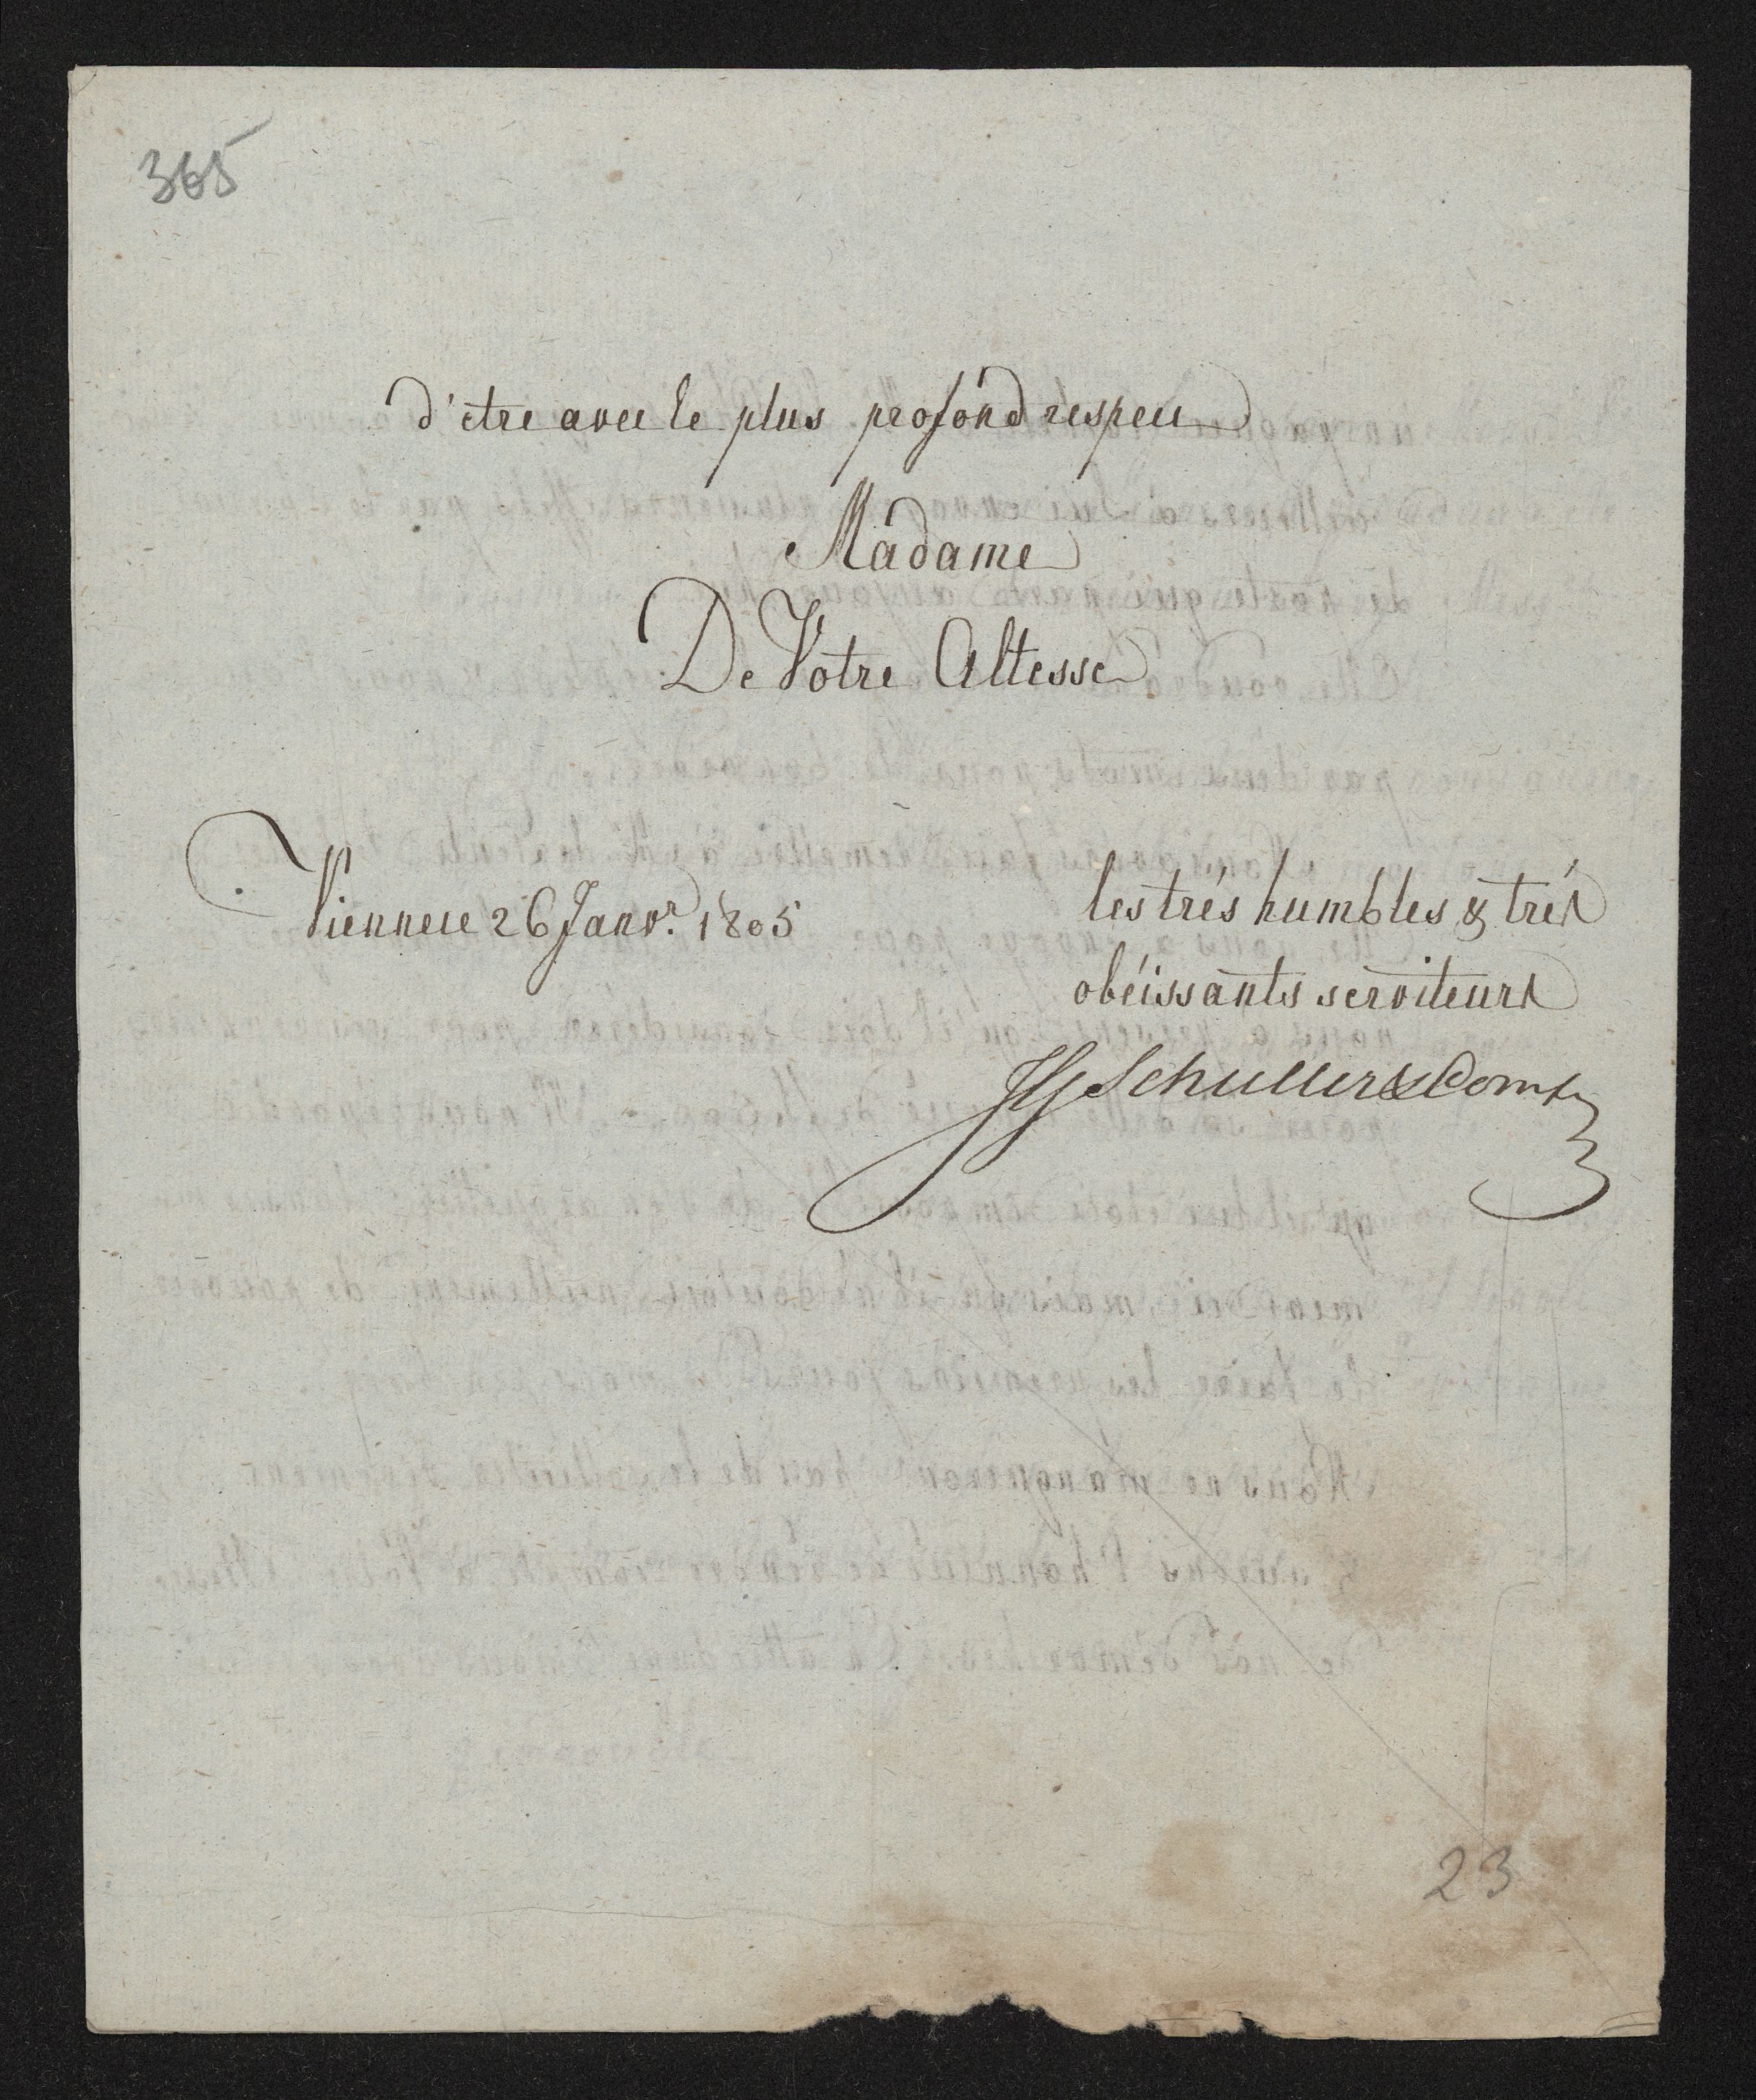 365
d'etre avec le plus profond respect
Madame
De Votre Altesse
Vienne le 26 Janvr. 1805
les trés humbles & trés
obéissants serviteurs
Schuller & Comp
23